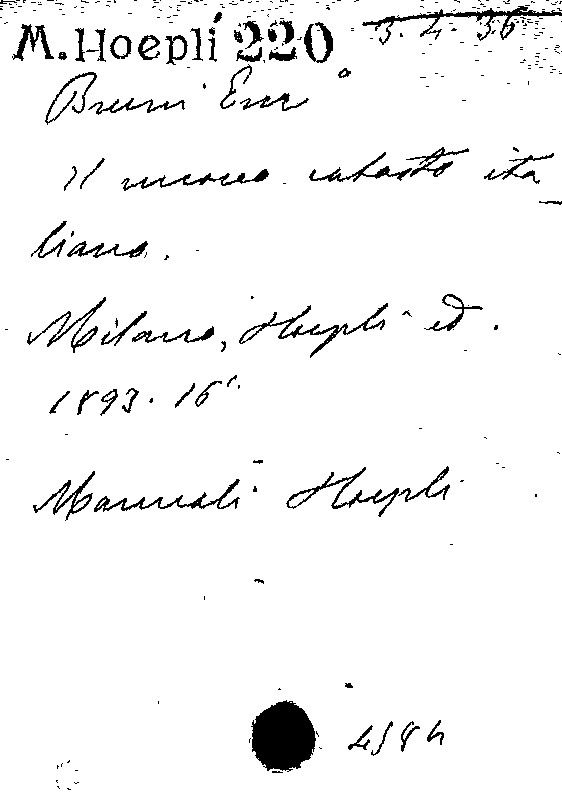 M. Hoepli 220 3. 4. 36
Bruni Enr°
Il nuovo catasto ita-
liano.
Milano, Hoepli ed.
1893. 16°
Manuali Hoepli